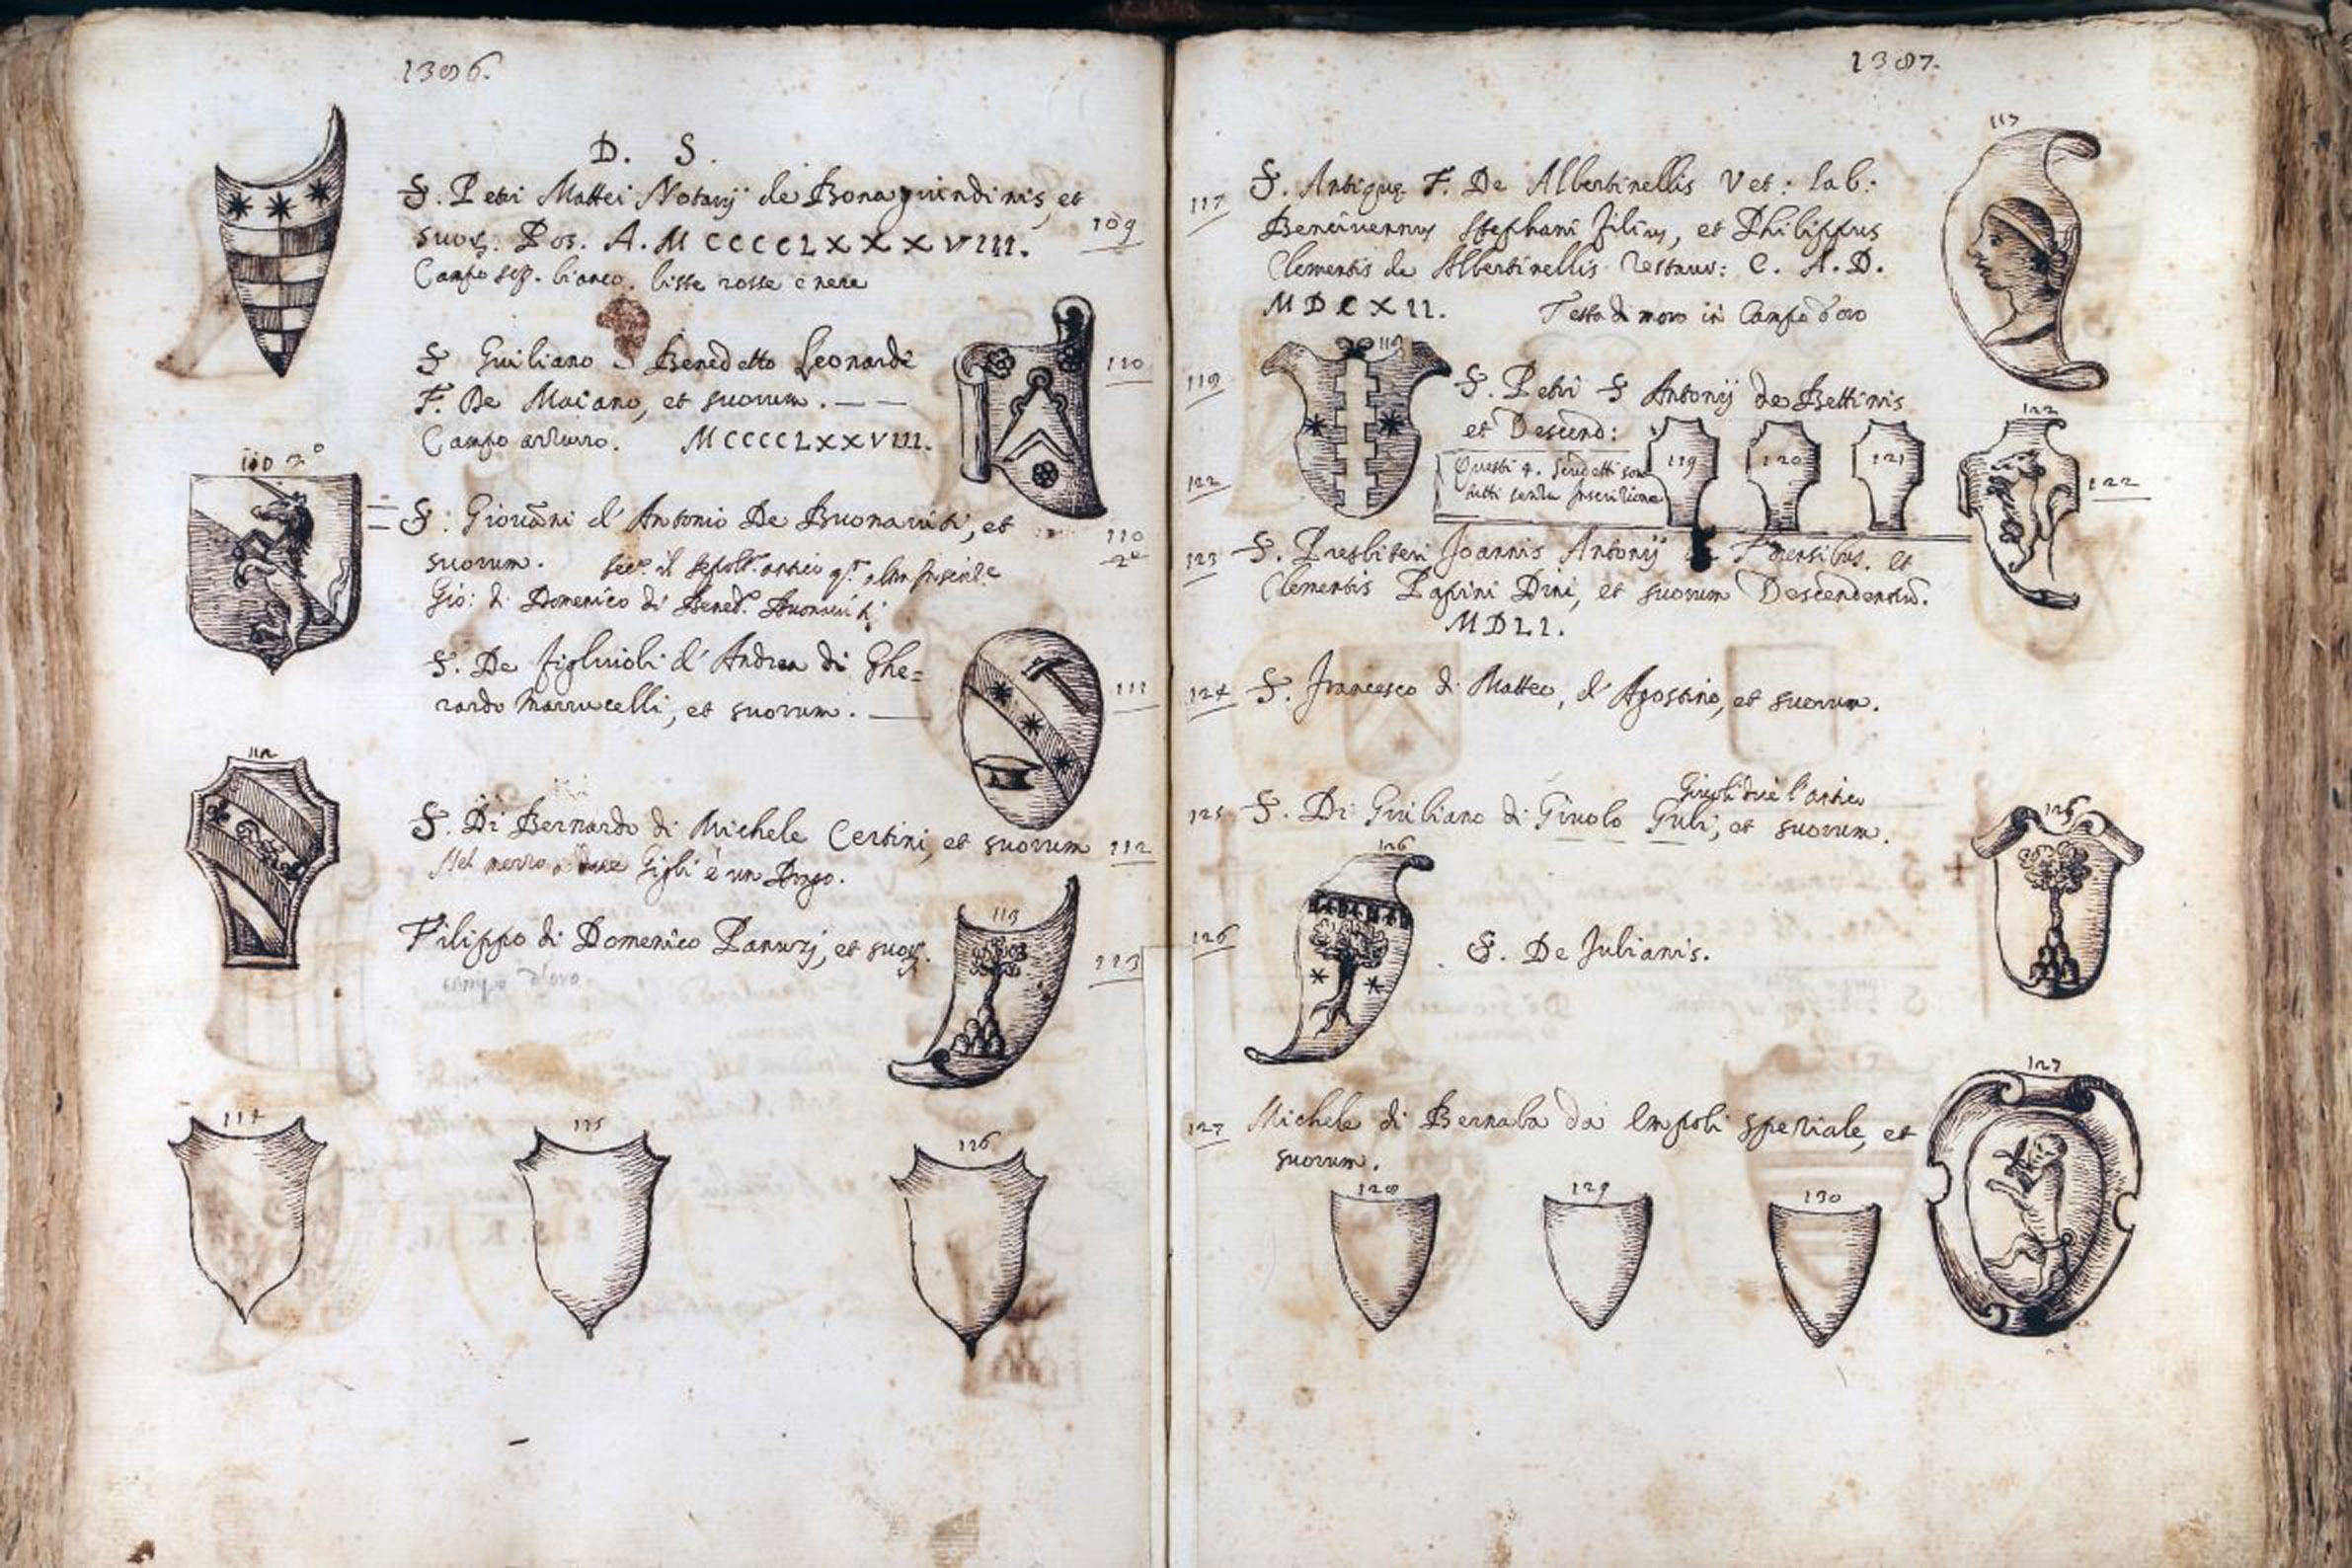 1386.
D. S.
S. Petri Mattei Notarij de Bonaguindinis, et
suor. Pos. A. M CCCCLXXXVIII.
109
Campo bianco. liste rosse e nere
S Guiliano S Benedetto Leonardi
F. De Maiano, et suorum. — —
110
Campo azzurro. MCCCCLXXVIII.
110 2°
S. Giovãni d' Antonio De Buonaviti, et
suorum.
110
2°
Gio: di Domenico di Bened.
S. De figliuoli d' Andrea di Ghe=
rardo Marrucelli, et suorum. —
111
112
S. Di Bernardo di Michele Certini, et suorum
112
Nel mezzo a due Gigli è un Drago.
113
Filippo di Domenico Panuzj, et suor.
113
campo d'oro
114
115
116
1387.
117
117
S. Antique F. De Albertinellis Vet: lab:
Bencivennus Stephani filius, et Philippus
Clementis de Albertinellis restaur: C. A. D.
MDCXII. Testa di moro in Campo d'oro
118
119
S. Petri S Antonij de Bettinis
et Descend:
122
Questi 4. scudetti sono
tutti senza Inscrizione
119
120
121
122
122
123
S. Presbiteri Joannis Antonij et
Clementis Papini Dini, et suorum Descendentiũ.
MDLI.
124
S. Francesco di Matteo, d' Agostino, et suorum.
125
S. Di Giuliano di Giuolo Guli, et suorum.
126
126
S. De Julianis.
127
127
Michele di Bernaba da Empoli speziale, et
suorum.
128
129
130